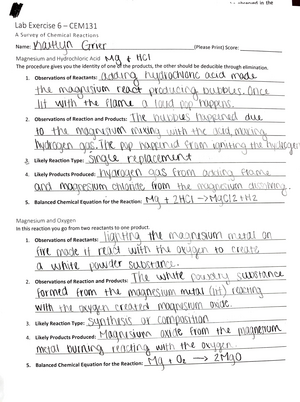 observed in the
Lab Exercise 6 – CEM131
A Survey of Chemical Reactions
Name: Kaitlyn Grier (Please Print) Score:
Magnesium and Hydrochloric Acid Mg + HCl
The procedure gives you the identity of one of the products, the other should be deduced through elimination.
1. Observations of Reactants: adding hydrochloric acid made
the magnesium react producing bubbles. Once
lit with the flame a loud pop happens.
2. Observations of Reaction and Products: The bubbles happened due
to the magnesium mixing with the acid, making
hydrogen gas. The pop happened from igniting the hydrogen
3. Likely Reaction Type: Single replacement
4. Likely Products Produced: hydrogen gas from adding flame
and magnesium chloride from the magnesium dissolving.
5. Balanced Chemical Equation for the Reaction: Mg + 2HCl → MgCl2 + H2
Magnesium and Oxygen
In this reaction you go from two reactants to one product.
1. Observations of Reactants: lighting the magnesium metal on
fire made it react with the oxygen to create
a white powder substance.
2. Observations of Reaction and Products: The white powdry substance
formed from the magnesium metal (lit) reacting
with the oxygen created magnesium oxide.
3. Likely Reaction Type: synthesis or composition
4. Likely Products Produced: Magnesium oxide from the magnesium
metal burning reacting with the oxygen.
5. Balanced Chemical Equation for the Reaction: Mg + O2 → 2MgO